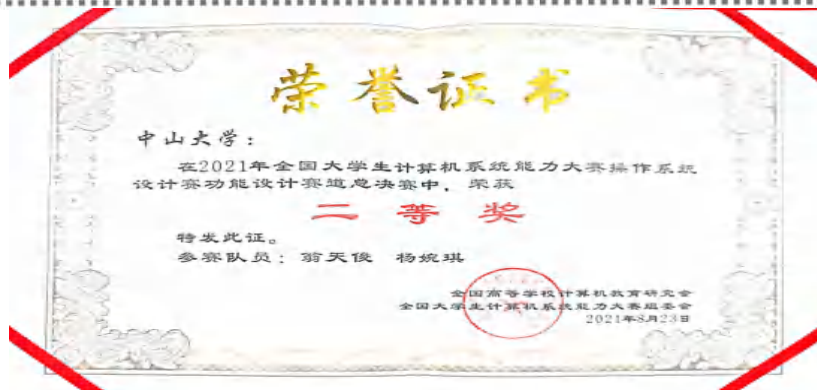 荣誉证书
中山大学：
在2021年全国大学生计算机系统能力大赛操作系统
设计赛功能设计赛道总决赛中，荣获
二等奖
特发此证。
参赛队员：翁天俊 杨婉琪
全国高等学校计算机教育研究会
全国大学生计算机系统能力大赛组委会
2021年8月23日